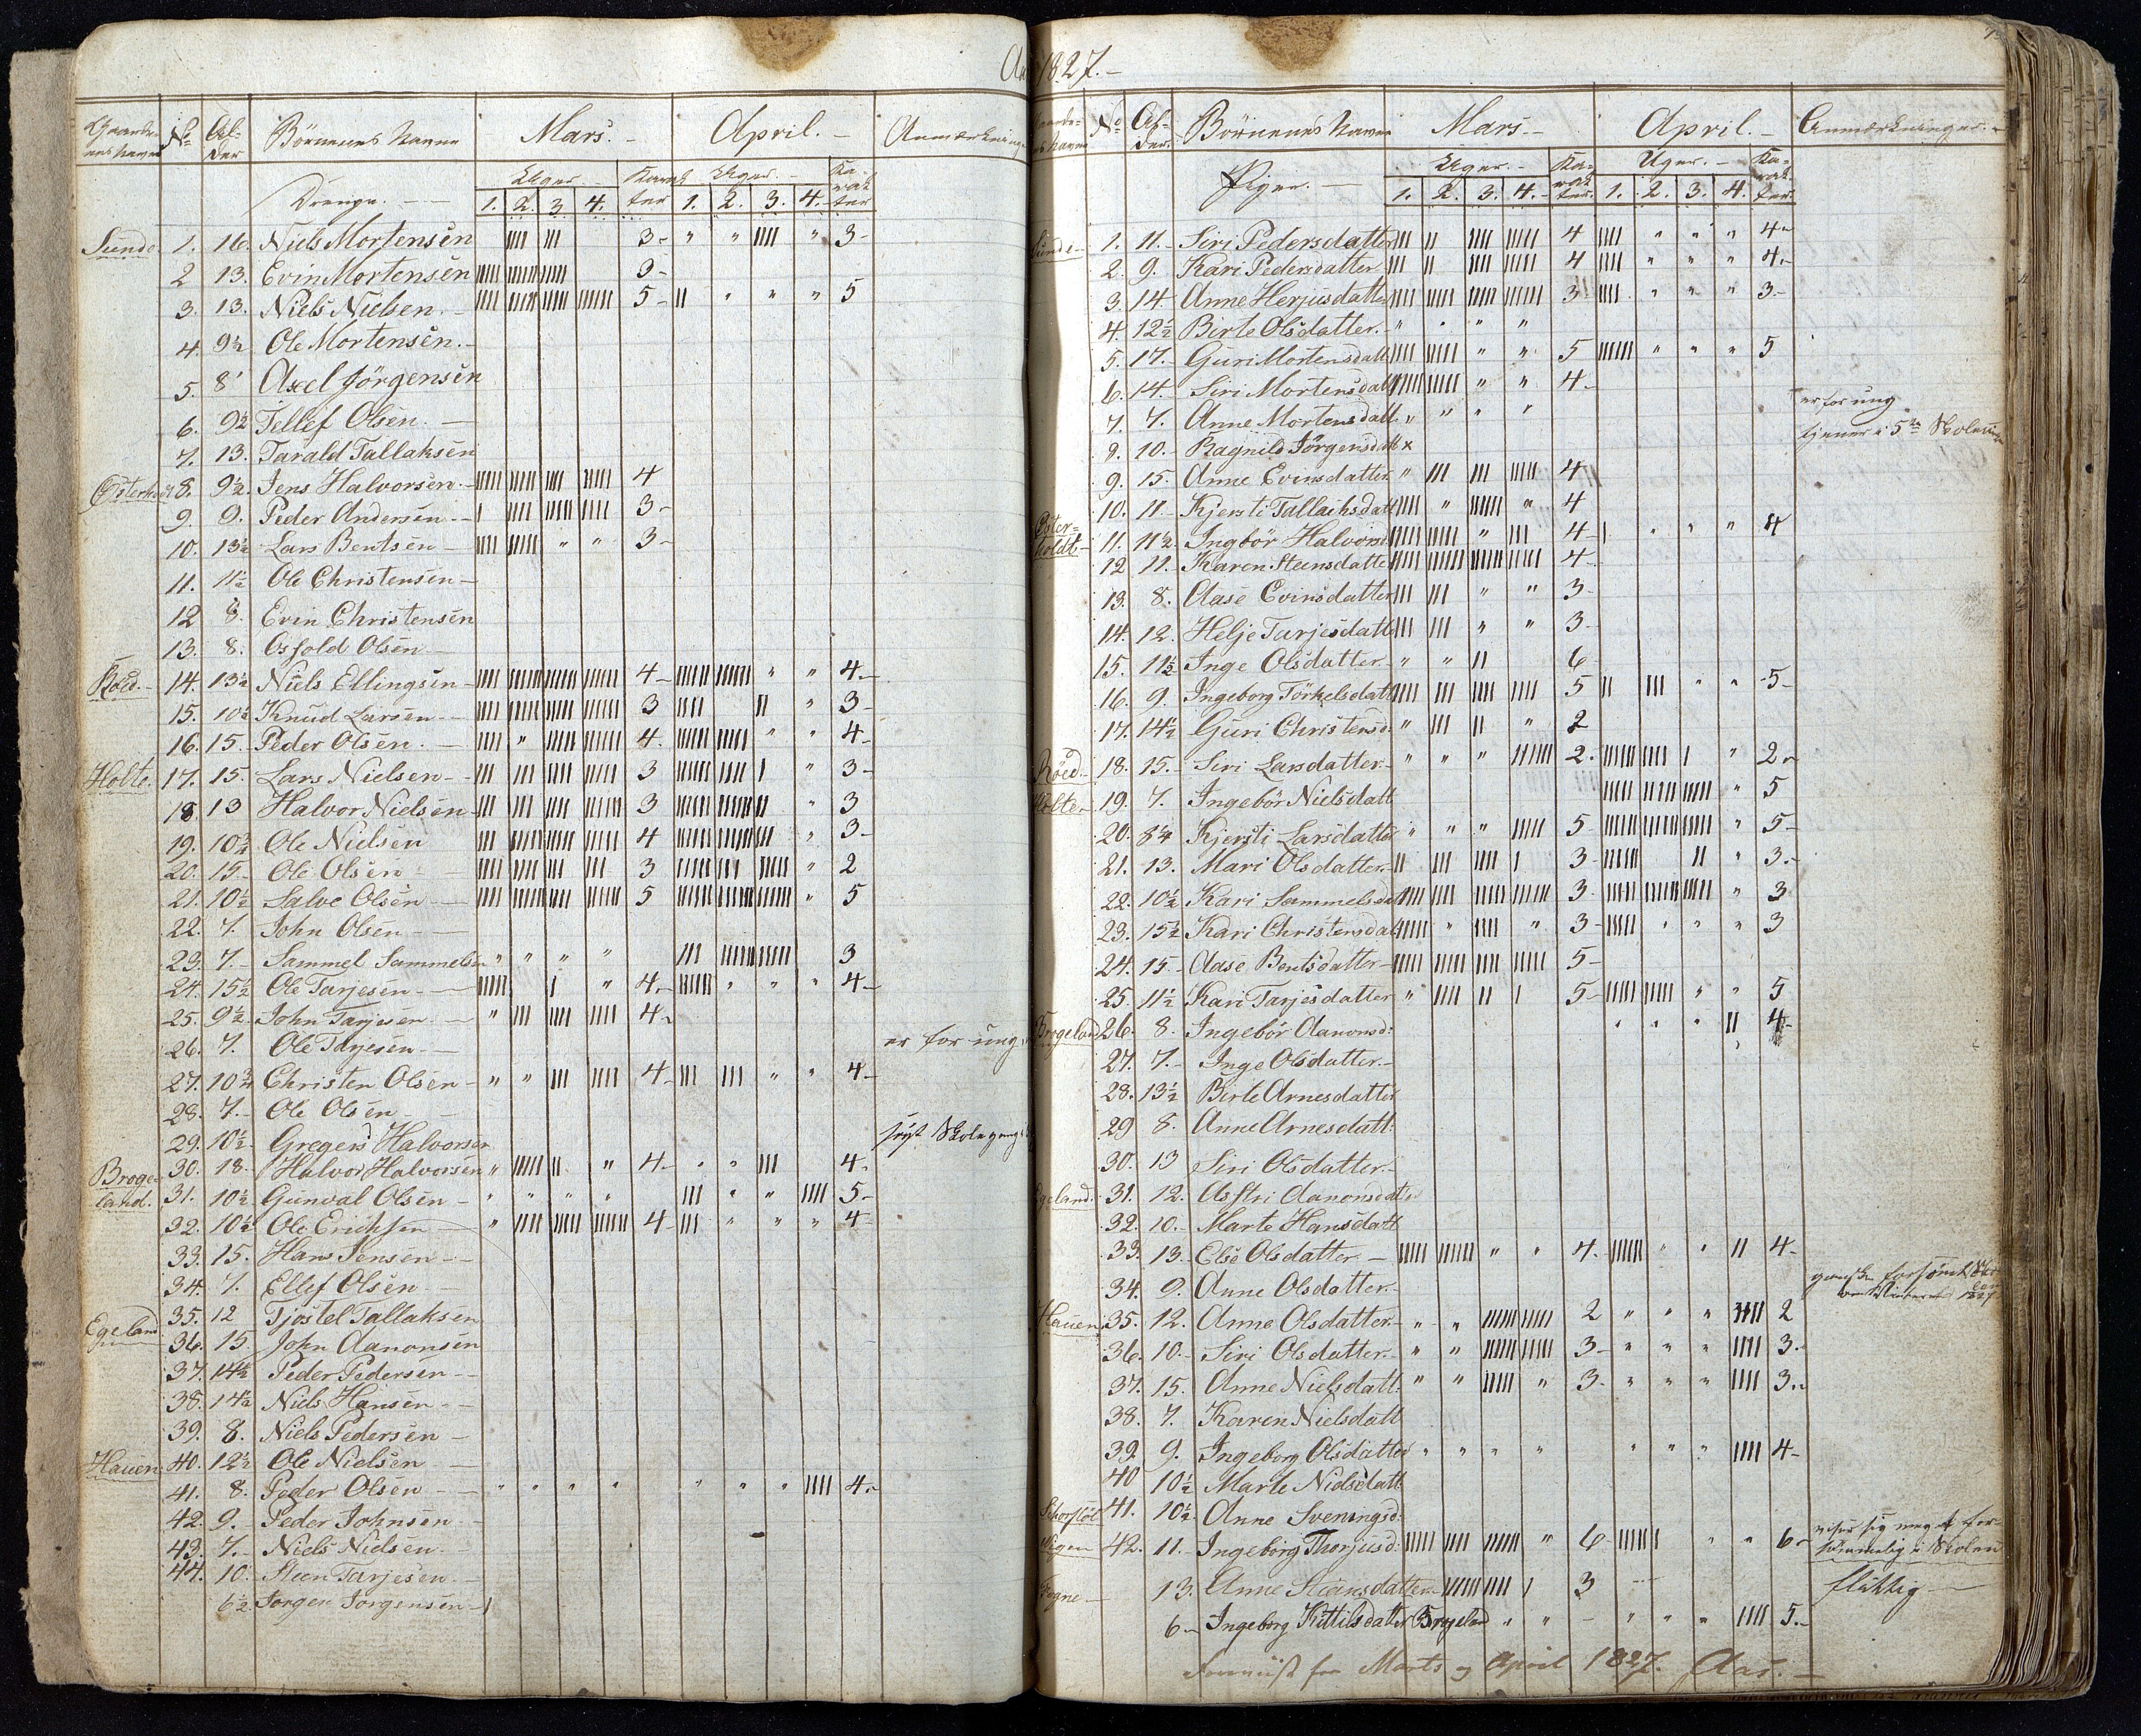 1827.
No Al-der Börnenes Navne Mars. April. Anmærkninger
Drenge. Uger Karakter Uger Karakter
1. 2. 3. 4. 1. 2. 3. 4.
Sunde 1. 16. Niels Mortensen 3 " " " 3
2 13. Evin Mortensen 3
3. 13. Niels Nielsen 5 " " " 5
4. 9½ Ole Mortensen.
5. 8 Axel Jörgensen
6. 9½ Tellef Olsen.
7. 13. Tarald Tallaksen
8. 9½ Jens Halvorsen 4
9. 9. Peder Andersen 3
10. 13½ Lars Bentsen " " 3
11. 11½ Ole Christensen
12 8. Evin Christensen
13. 8. Osfold Olsen
Röed. 14. 13½ Niels Ellingsen 4 " " 4
15. 10½ Knud Larsen 3 " 3
16. 15. Peder Olsen. " 4 " " 4
Holte. 17. 15. Lars Nielsen 3 " 3
18 13 Halvor Nielsen 3 " 3
19. 10¾ Ole Nielsen 4 " 3
20. 15 Ole Olsen 3 " 2
21. 10½ Salve Olsen 5 " 5
22. 7. John Olsen
23. 7. Sammel Sammelsen " " " " 3
24. 15½ Ole Tarjesen " 4 " " " 4
25. 9½ John Tarjesen " 4
26. 7. Ole Tarjesen er for ung
27. 10¾ Christen Olsen " " 4 " " 4
28. 7. Ole Olsen
29. 10½ Gregers Halvorsen
Brogeland. 30. 18. Halvor Halvorsen " " 4 " " 4
31. 10½ Gunval Olsen " " " " " " 5
32. 10½ Ole Erichsen " 4 " " " 4
33. 15. Hans Jensen
34. 7. Ellef Olsen
35. 12 Tjostel Tallaksen
Egeland 36. 15 John Aanonsen
37. 14½ Peder Pedersen
38. 14½ Niels Hansen
39. 8. Niels Pedersen
Hauen 40. 12½ Ole Nielsen
41. 8. Peder Olsen " " " " " " " 4
42. 9. Peder Johnsen
43. 7. Niels Nielsen
44. 10. Steen Tarjesen
6½ Jorgen Jorgensen
No Al-der. Börnenes Navne Mars. April. Anmærkninger.
Piger. Uger. Karakter. Uger. Karakter.
1. 2. 3. 4. 1. 2. 3. 4.
Sunde 1. 11. Siri Pedersdatter 4 " " " 4
2. 9. Kari Pedersdatter 4 " " " 4
3. 14 Anne Herjusdatter 3 " " " 3
4. 12½ Birte Olsdatter. " " " "
5. 17. Guri Mortensdatt " " 5 " " " 5
6. 14. Siri Mortensdatt " " 4
7. 7. Anne Mortensdatt " " " " er for ung
8. 10. Ragnild Jörgensdatt x tjener i 5te
9. 15. Anne Evinsdatter " 4
10. 11. Kjersti Tallachsdatt " " 4
Osterholdt 11. 11½ Ingbör Halvorsd " 4 " " " 4
12 11. Karen Steensdatter 4
13. 8. Aase Evinsdatter " " 3
14. 12. Helje Tarjesdatt " " 3
15. 11½ Inge Olsdatter " " 6
16. 9. Ingeborg Törkelsdatt 5 " " 5
17. 14½ Guri Christensd: " " 2
Röed 18. 15. Siri Larsdatter " " " 2 " 2
Holte 19. 7. Ingebör Nielsdatt " 5
20. 8¼ Kjersti Larsdatter " " " 5 " 5
21. 13. Mari Olsdatter 3 " 3.
22. 10½ Kari Sammelsdatt 3 " 3
23. 15½ Kari Christensdatt " " 3 " " " 3
24. 15. Aase Bentsdatter 5
25. 11½ Kari Tarjesdatter " 5 " " 5
Brogeland 26. 8. Ingebör Aanonsd: " " " 4
27. 7. Inge Olsdatter.
28. 13½ Birte Arnesdatter
29 8. Anne Arnesdatt:
30. 13 Siri Olsdatter
Egeland. 31. 12. Asstri Aanonsdatter
32. 10. Marte Hansdatt
33. 13. Else Olsdatter " " 4. " " 4
34. 9. Anne Olsdatter
Hauen 35. 12. Anne Olsdatter " " 2 " " " 2
36. 10. Siri Olsdatter " " 3 " " " 3.
37. 15. Anne Nielsdatt: " " " 3. " " " 3.
38. 7. Karen Nielsdatt
39. 9. Ingeborg Olsdatter " " " " " " " 4
40 10½ Marte Nielsdatt
41. 10½ Anne Sveningsd:
42. 11. Ingeborg Thorjusd: " 6 " " 6 viser sig meget for-
i Skolen
13. Anne Steansdatter 3 flittig
6 Ingeborg Kittilsdatter Brogeland " " " " " 5.
for Marts og April 1827. Aas.